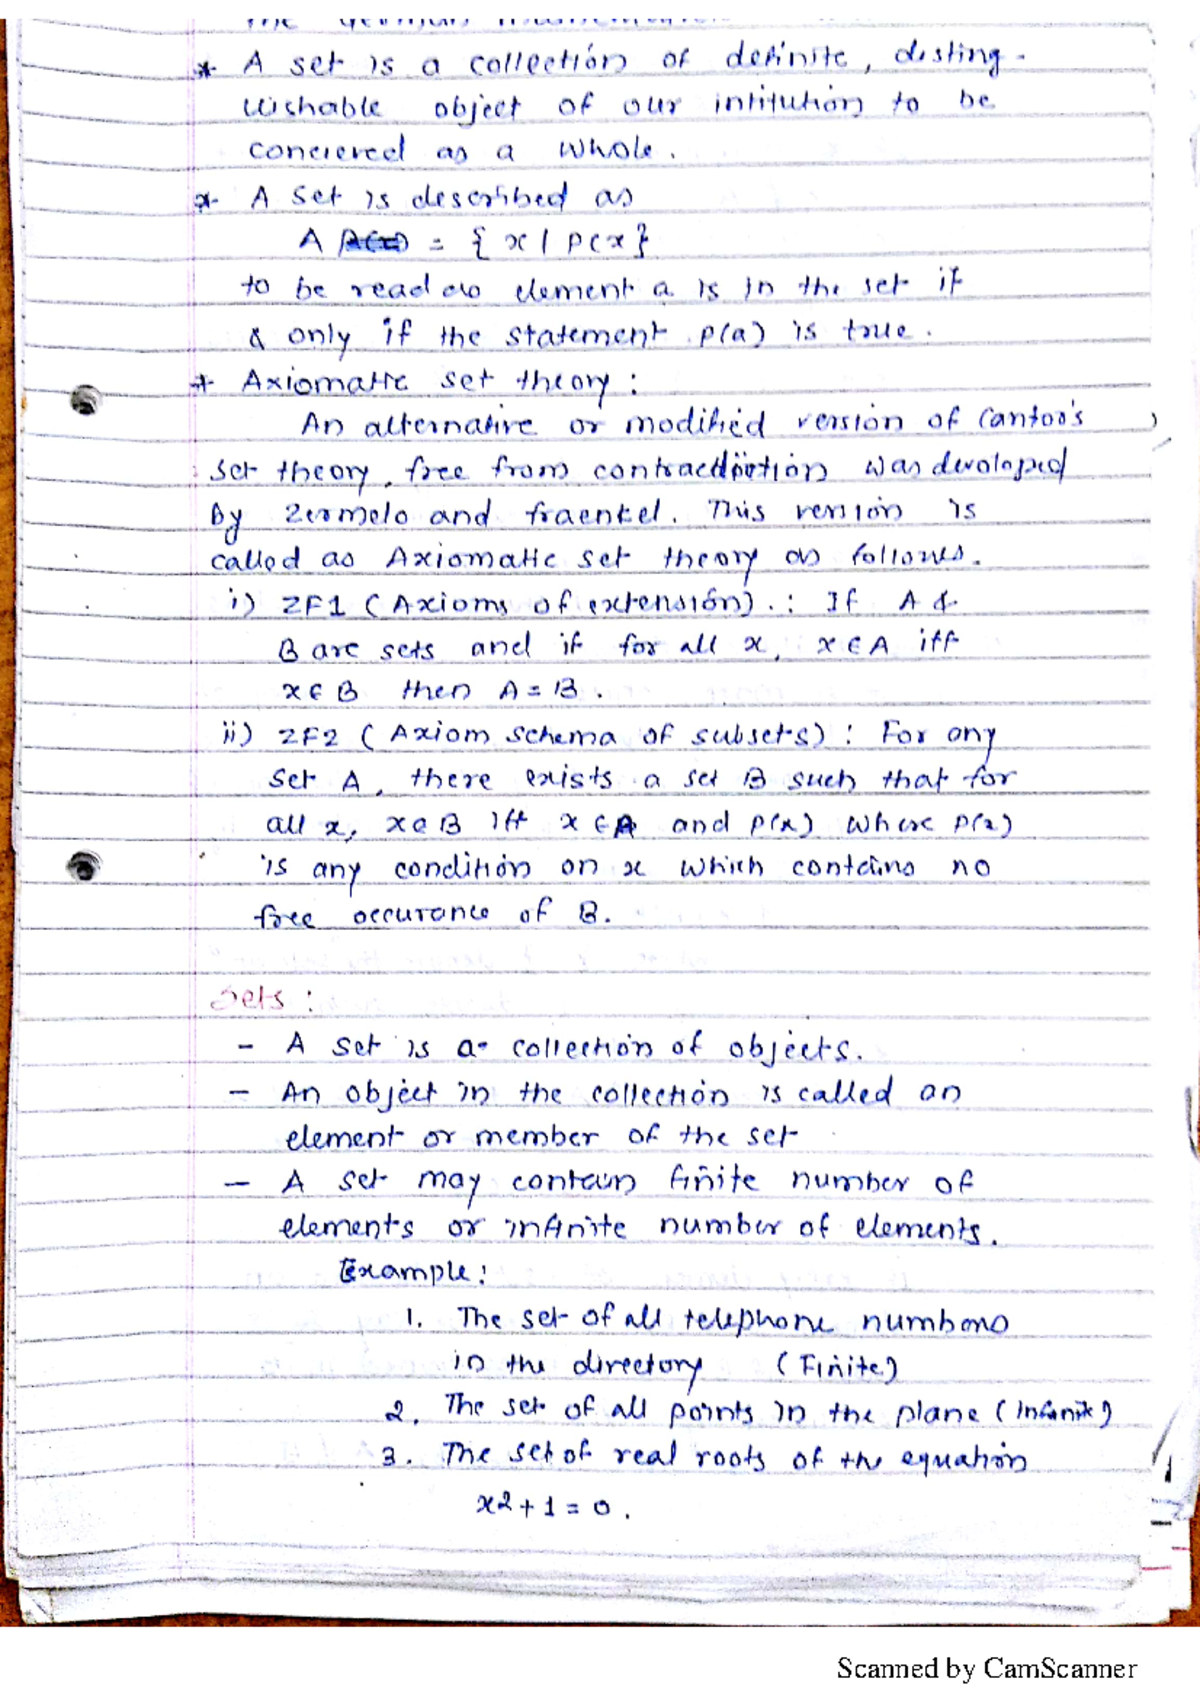 * A set is a collection of definite, disting-
uishable object of our intitution to be
conciered as a whole.
* A set is described as
A = { x | p(x}
to be read as element a is in the set if
& only if the statement p(a) is true.
* Axiomatic set theory :
An alternative or modified version of Cantor's
set theory, free from contradiction was devoloped
by Zermelo and fraenkel. This version is
called as Axiomatic set theory as follows.
i) ZF1 (Axioms of extension). : If A &
B are sets and if for all x, x ∈ A iff
x ∈ B then A = B.
ii) ZF2 (Axiom schema of subsets) : For any
set A, there exists a set B such that for
all x, x ∈ B iff x ∈ A and p(x) where p(x)
is any condition on x which contains no
free occurance of B.
Sets :
- A set is a collection of objects.
- An object in the collection is called an
element or member of the set
- A set may contain finite number of
elements or infinite number of elements.
Example :
1. The set of all telephone numbers
in the directory (Finite)
2. The set of all points in the plane (Infinite)
3. The set of real roots of the equation
x2 + 1 = 0.
Scanned by CamScanner